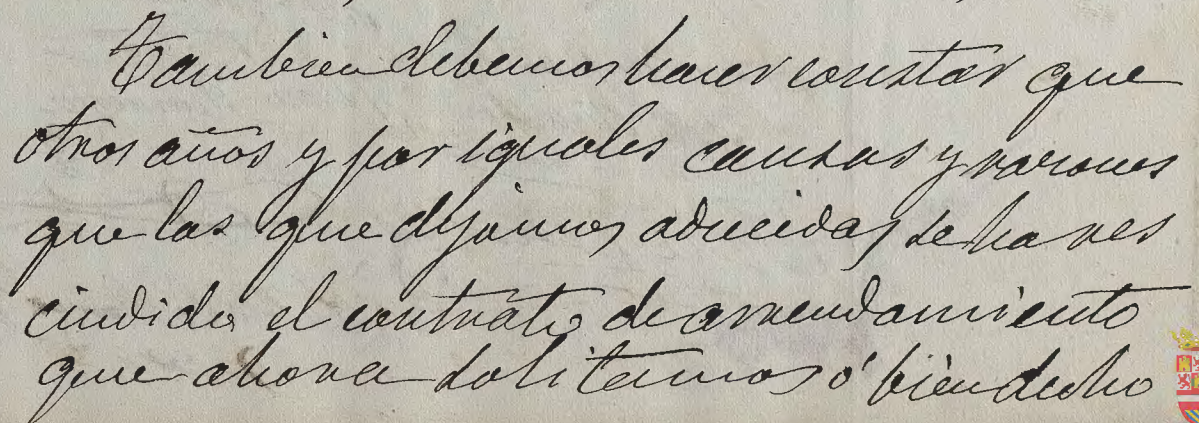 Tambien debemos hacer constar que
otros años y por iguales causas y razones
que las que dejamos aducidas se ha res
cindido el contrato de arrendamiento
que ahora solitamos ó bien dicho